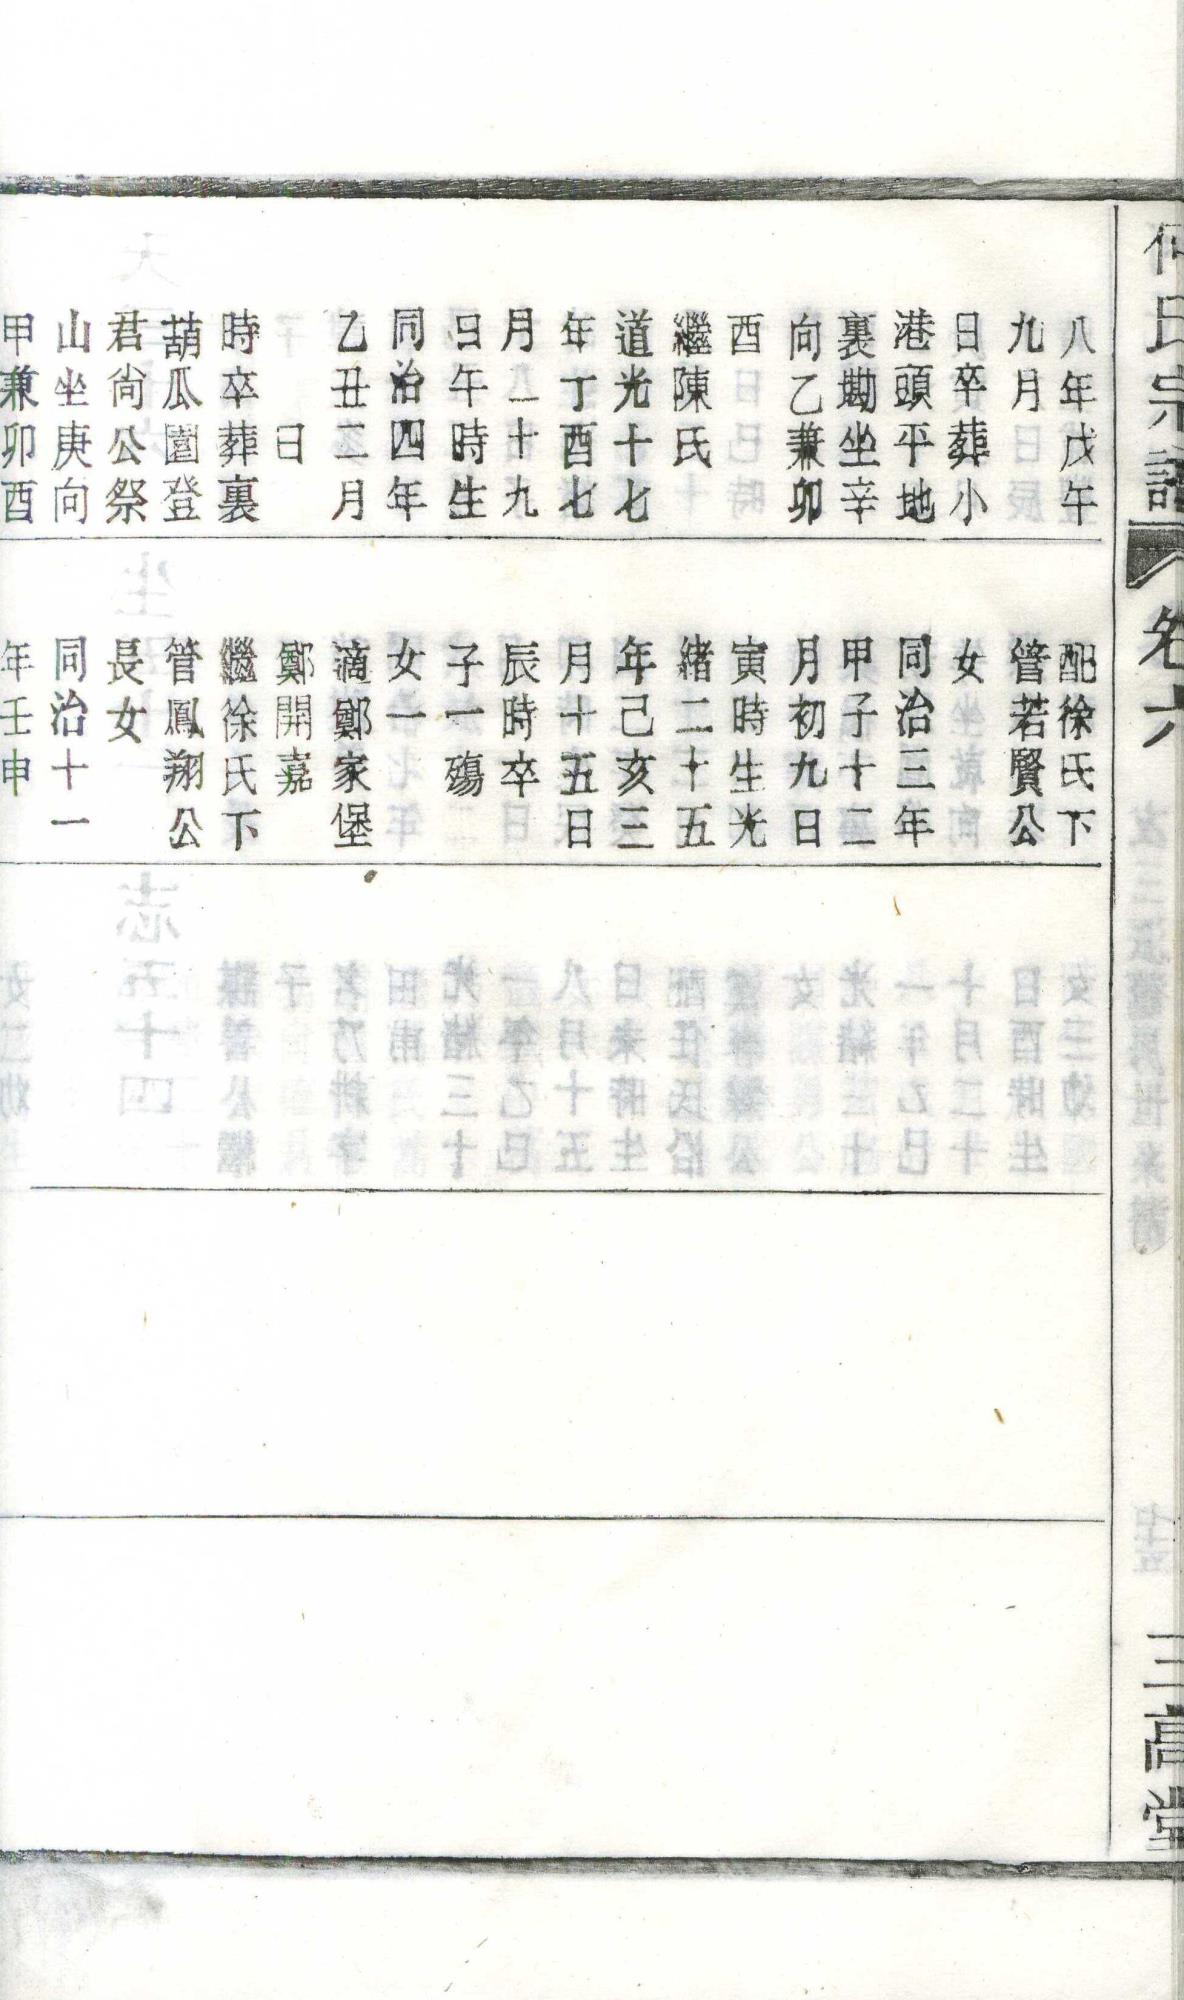 何氏宗譜
卷六
三高堂
八年戊午
九月
日卒葬小
港頭平地
裏坐辛
向乙兼卯
酉
繼陳氏
道光十七
年丁酉七
月二十九
日午時生
同治四年
乙丑二月
日
時卒葬裏
葫瓜園登
君尚公祭
山坐庚向
甲兼卯酉
配徐氏下
管若賢公
女
同治三年
甲子十二
月初九日
寅時生光
緒二十五
年己亥三
月十五日
辰時卒
子一殤
女一
適鄭家堡
鄭開嘉
繼徐氏下
管鳳翔公
長女
同治十一
年壬申